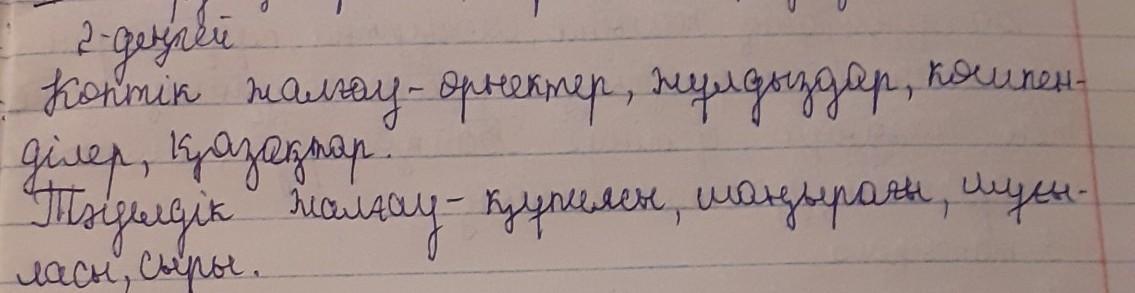 2-деңгей
Көптік жалғау - өрнектер, жұлдыздар, көшпен-
ділер, қазақтар.
Тәуелдік жалғау - құпиясы, шаңырағы, шуы-
ласы, сыры.